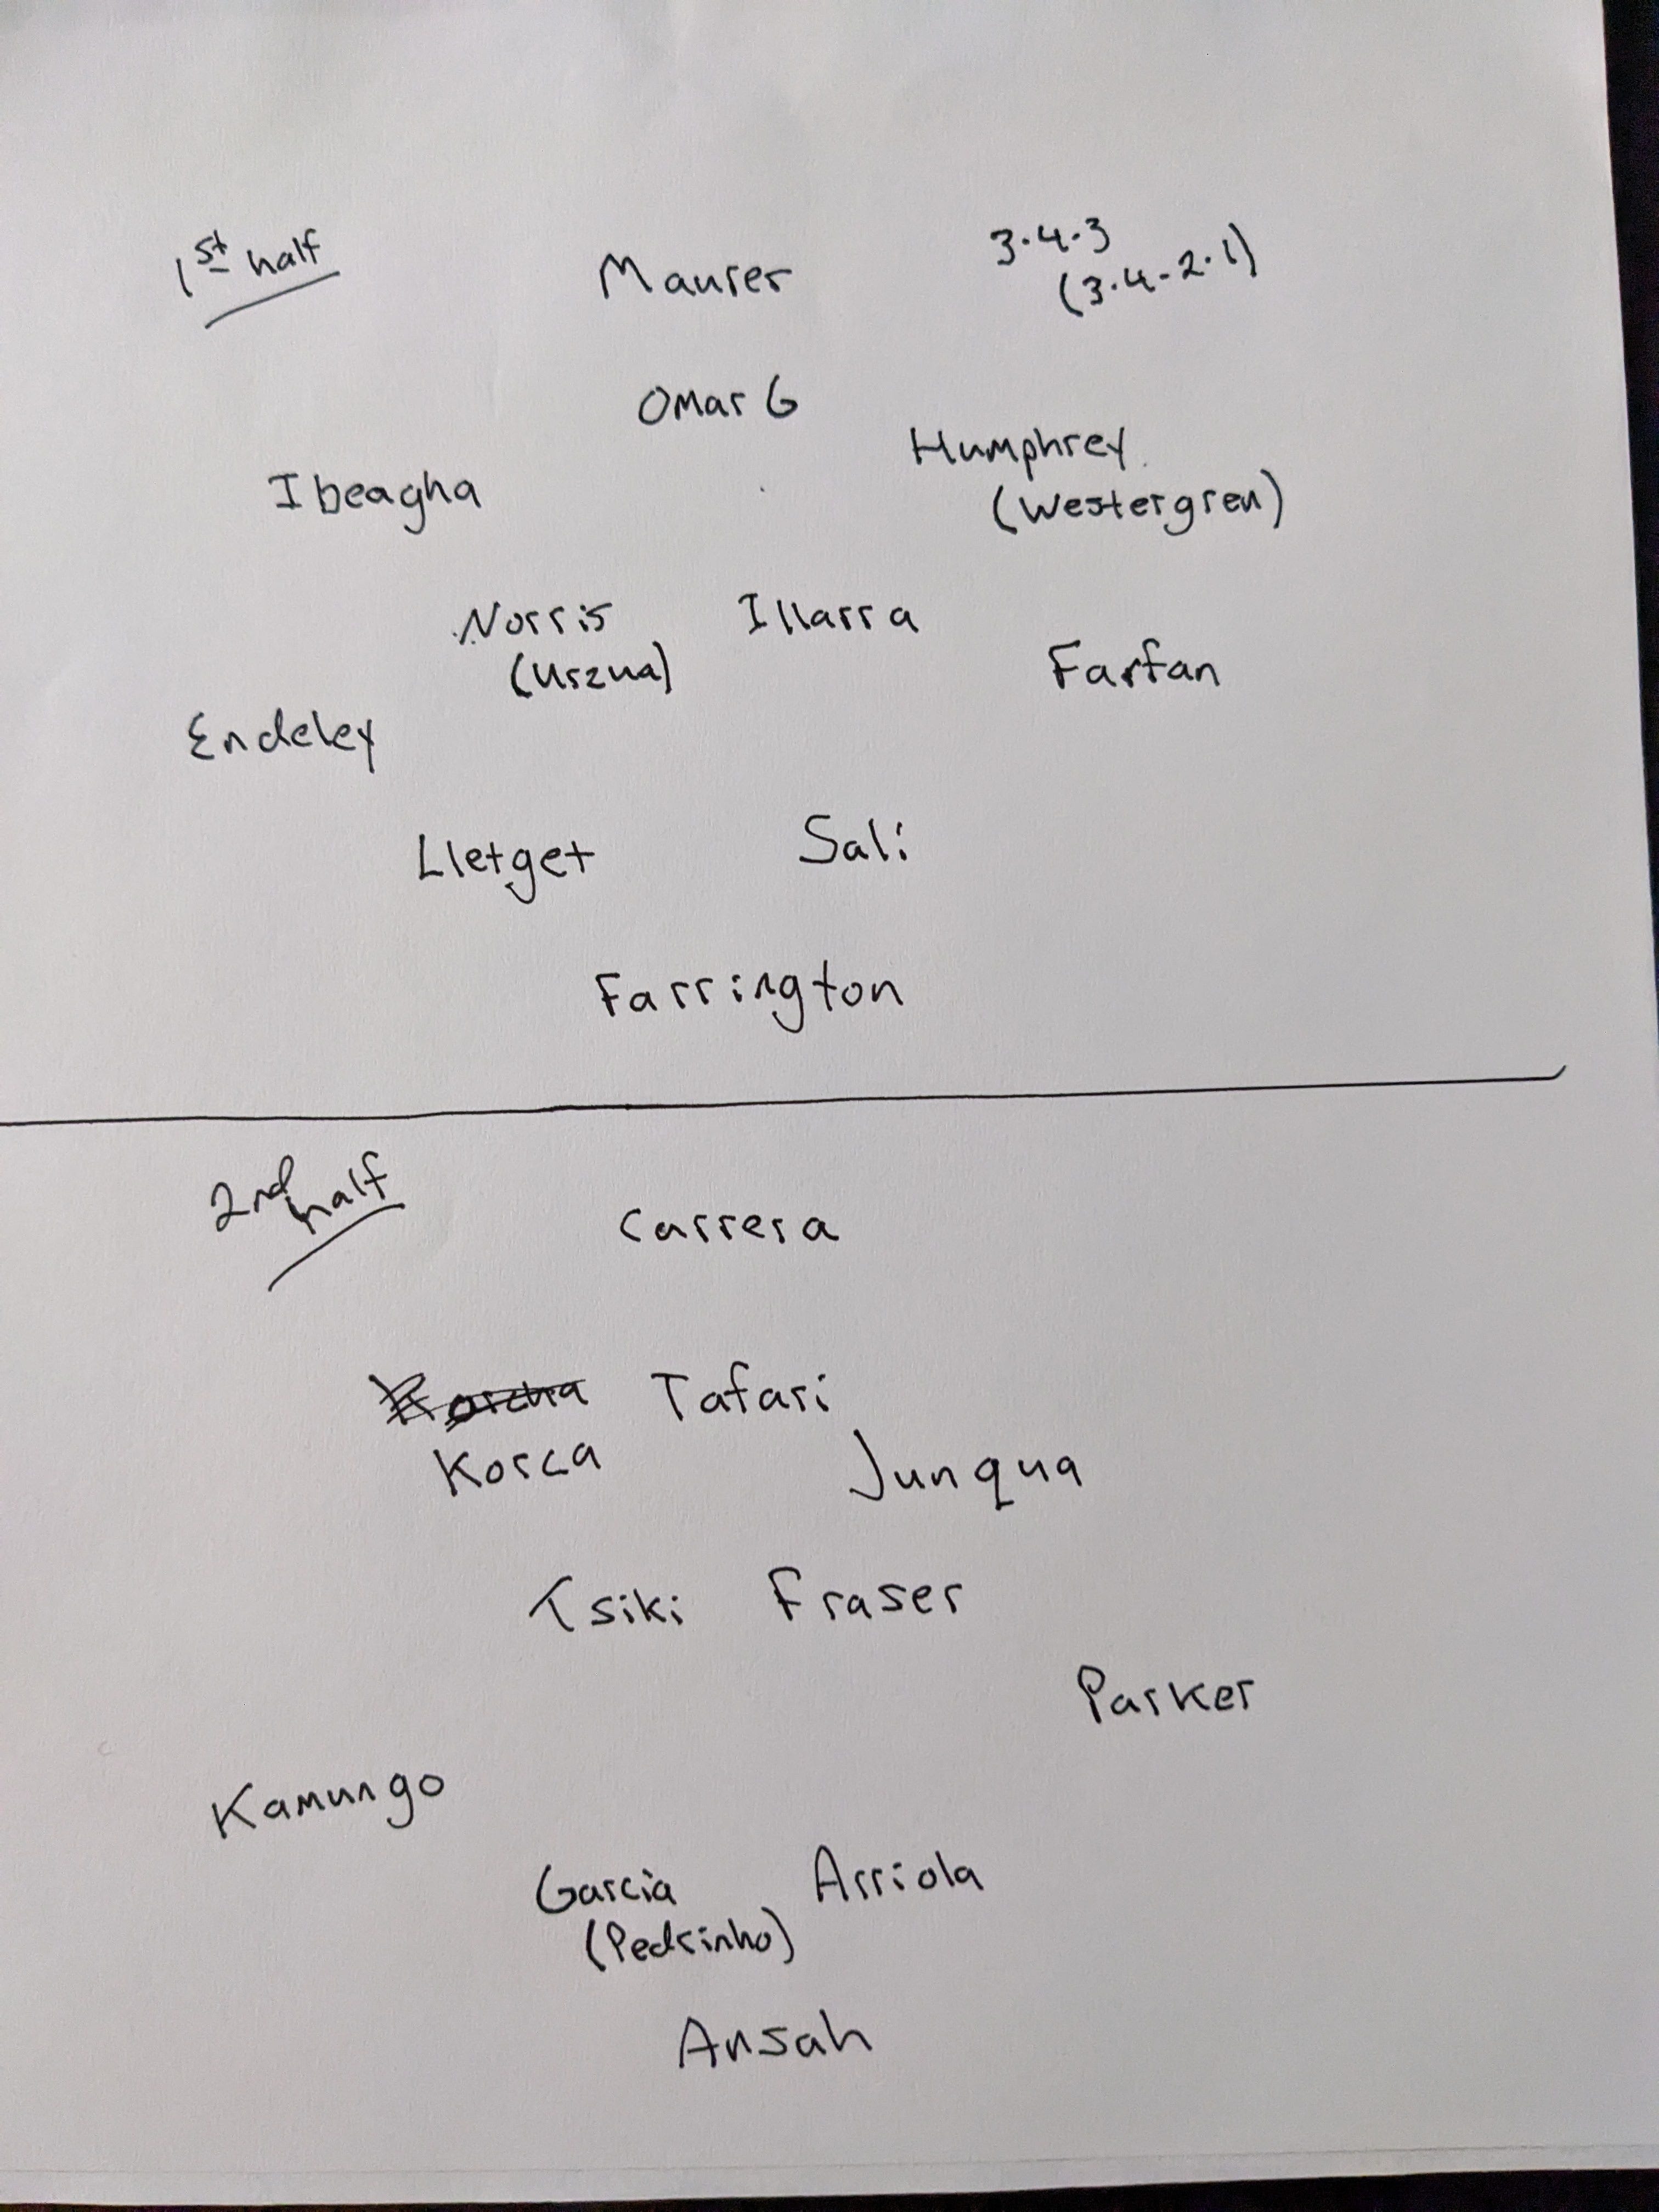 1st half
Maurer
3.4.3
(3.4-2.1)
Omar G
Humphrey
(Westergren)
Ibeagha
Norris
(Urzua)
Illarra
Farfan
Endeley
Lletget
Sali
Farrington
2nd half
Carrera
Tafari
Korca
Junqua
Tsiki
Fraser
Parker
Kamungo
Garcia
(Pedrinho)
Arriola
Ansah